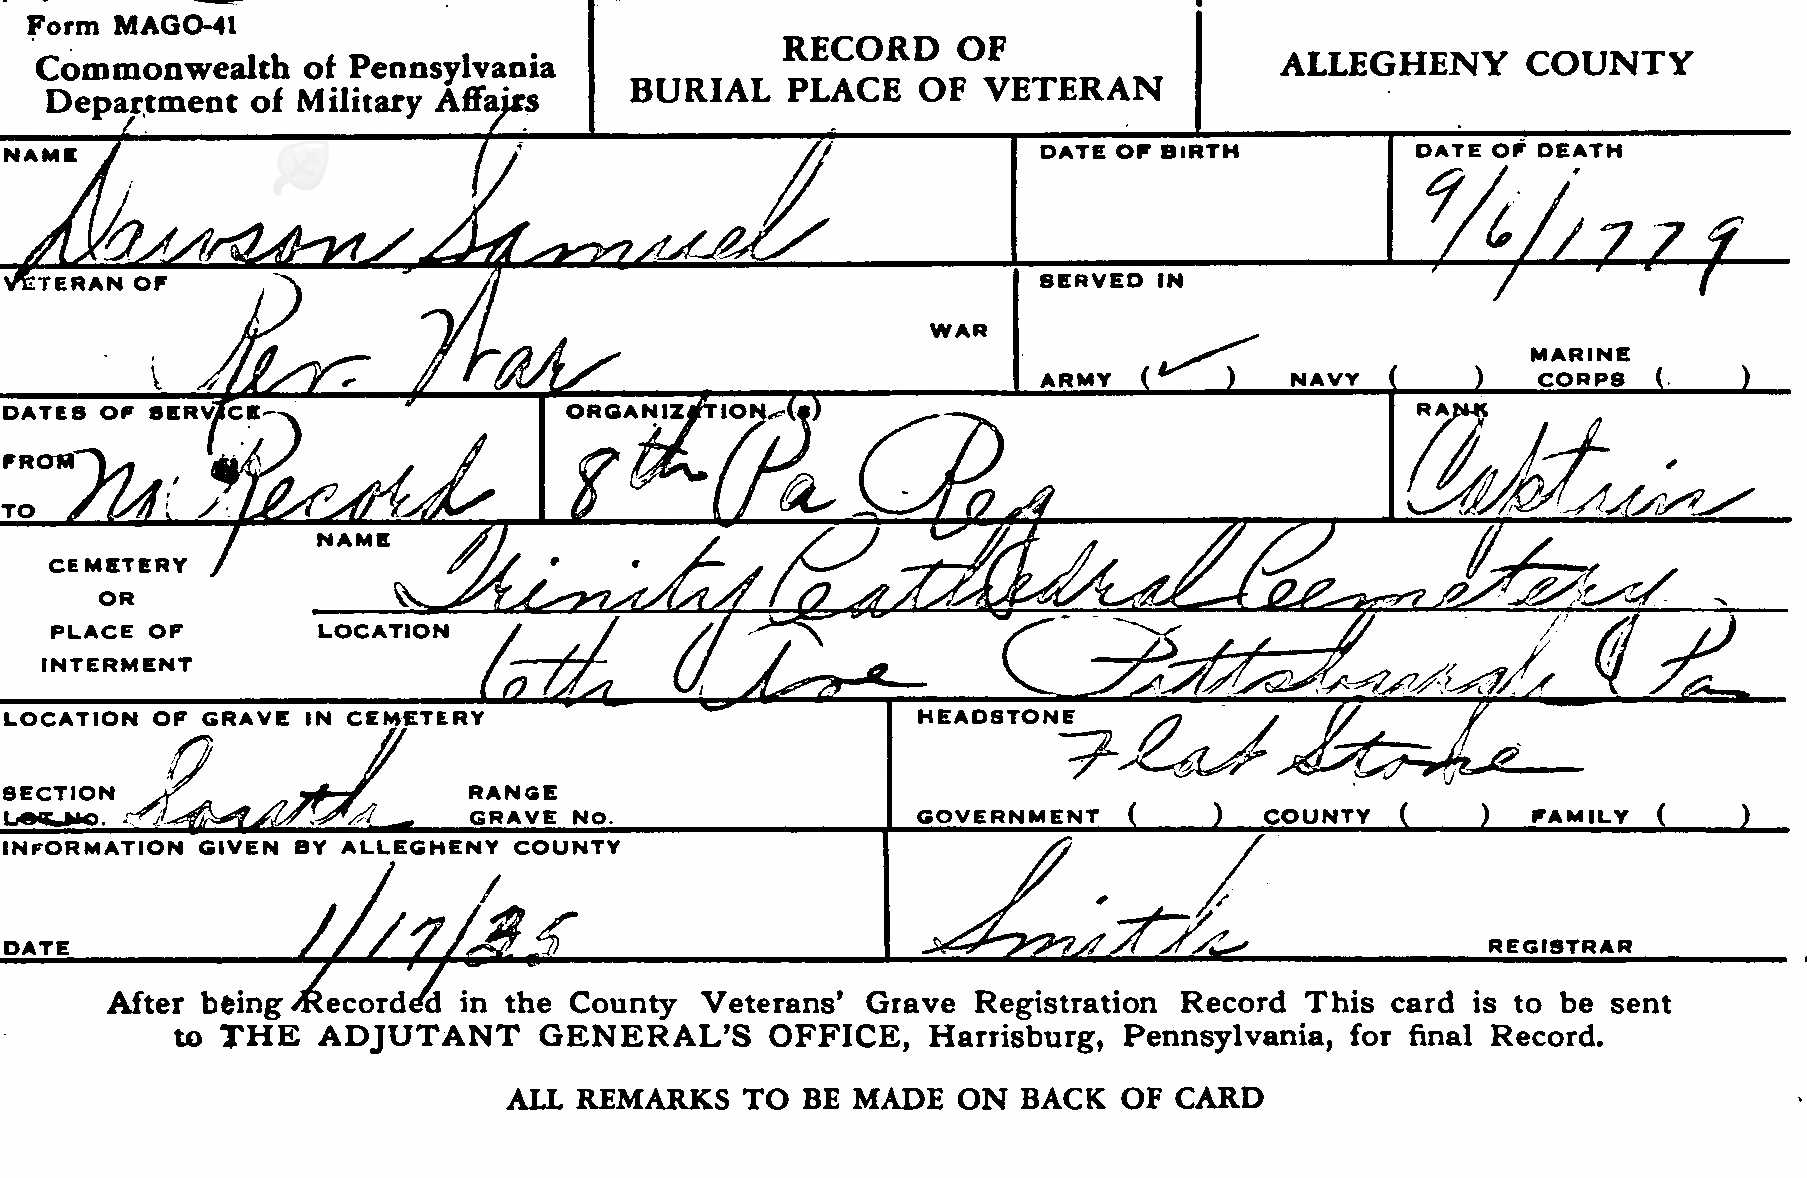 Form MAGO-41
Commonwealth of Pennsylvania
Department of Military Affairs
RECORD OF
BURIAL PLACE OF VETERAN
ALLEGHENY COUNTY
NAME
Dawson Samuel
DATE OF BIRTH
DATE OF DEATH
9/6/1779
VETERAN OF
Rev. War
WAR
SERVED IN
ARMY (✓) NAVY ( ) MARINE CORPS ( )
DATES OF SERVICE
FROM
TO
No Record
ORGANIZATION-(s)
8th Pa Reg
RANK
Captain
CEMETERY
OR
PLACE OF
INTERMENT
NAME
Trinity Cathedral Cemetery
LOCATION
6th Ave Pittsburgh Pa
LOCATION OF GRAVE IN CEMETERY
SECTION
LOT NO.
South
RANGE
GRAVE NO.
HEADSTONE
Flat Stone
GOVERNMENT ( ) COUNTY ( ) FAMILY ( )
INFORMATION GIVEN BY ALLEGHENY COUNTY
DATE
1/17/35
Smith
REGISTRAR
After being Recorded in the County Veterans' Grave Registration Record This card is to be sent
to THE ADJUTANT GENERAL'S OFFICE, Harrisburg, Pennsylvania, for final Record.
ALL REMARKS TO BE MADE ON BACK OF CARD